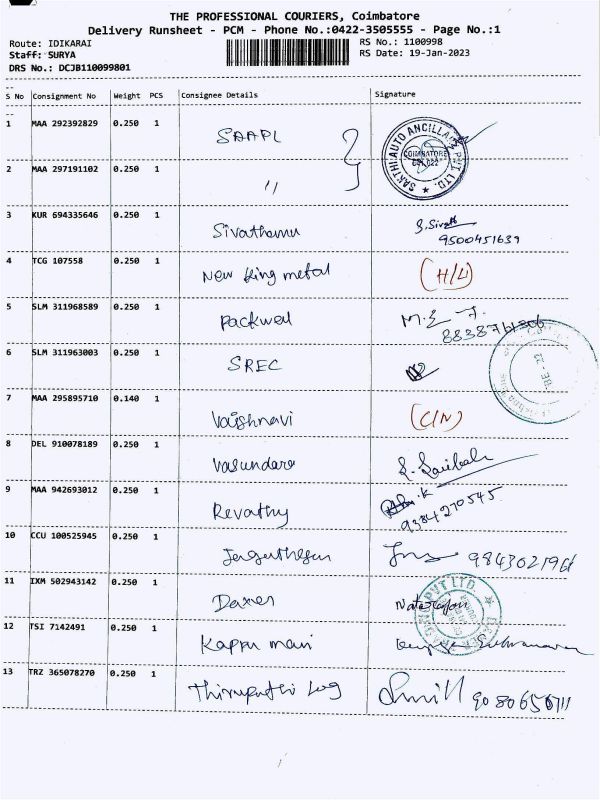 THE PROFESSIONAL COURIERS, Coimbatore
Delivery Runsheet - PCM - Phone No.:0422-3505555 - Page No.:1
Route: IDIKARAI RS No.: 1100998
Staff: SURYA RS Date: 19-Jan-2023
DRS No.: DCJB110099801
S No Consignment No Weight PCS Consignee Details Signature
1 MAA 292392829 0.250 1 SAAPL
SAKTHI AUTO ANCILLARY PVT. LTD. COIMBATORE
2 MAA 297191102 0.250 1 "
3 KUR 694335646 0.250 1 Sivathanu S. Sivath
9500451639
4 TCG 107558 0.250 1 New King metal (H/L)
5 SLM 311968589 0.250 1 Packwell M.E
8838761306
6 SLM 311963003 0.250 1 SREC
7 MAA 295895710 0.140 1 Vaishnavi (C/N)
8 DEL 910078189 0.250 1 Vasundara
9 MAA 942693012 0.250 1 Revathy
9384270545
10 CCU 100525945 0.250 1
11 IXM 502943142 0.250 1 Natarajan
12 TSI 7142491 0.250 1 Kappu mani
13 TRZ 365078270 0.250 1 Thirupathi Log